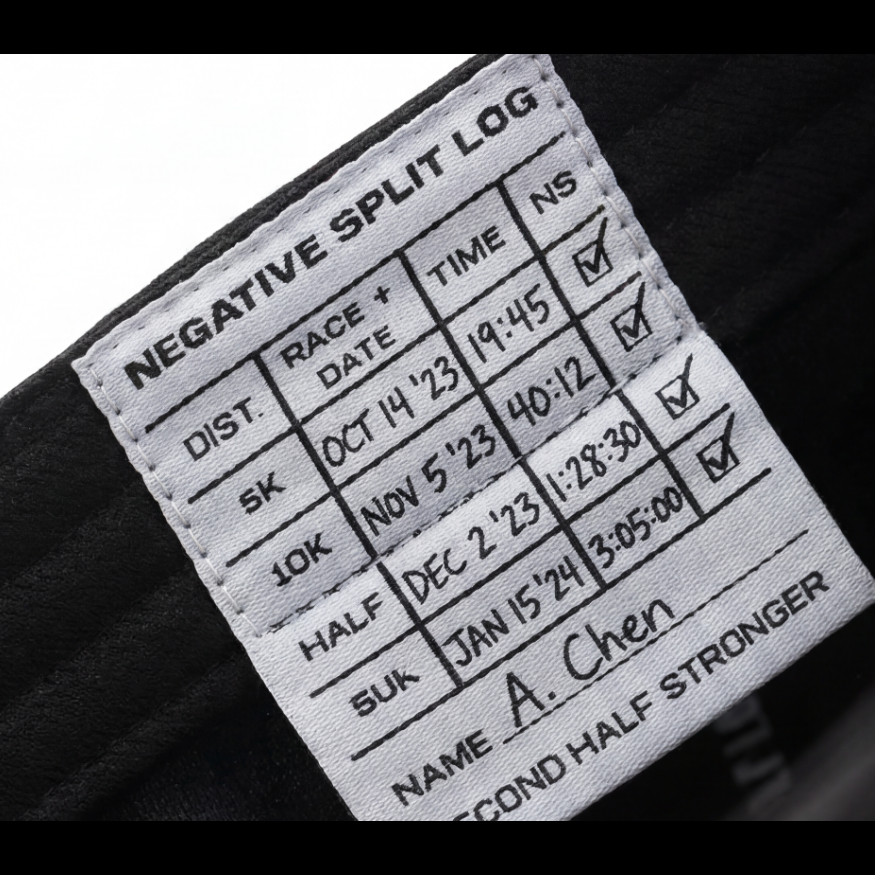 NEGATIVE SPLIT LOG
DIST. RACE + DATE TIME NS
5K OCT 14 '23 19:45 ☑
10K NOV 5 '23 40:12 ☑
HALF DEC 2 '23 1:28:30 ☑
5UK JAN 15 '24 3:05:00 ☑
NAME A. Chen
ECOND HALF STRONGER